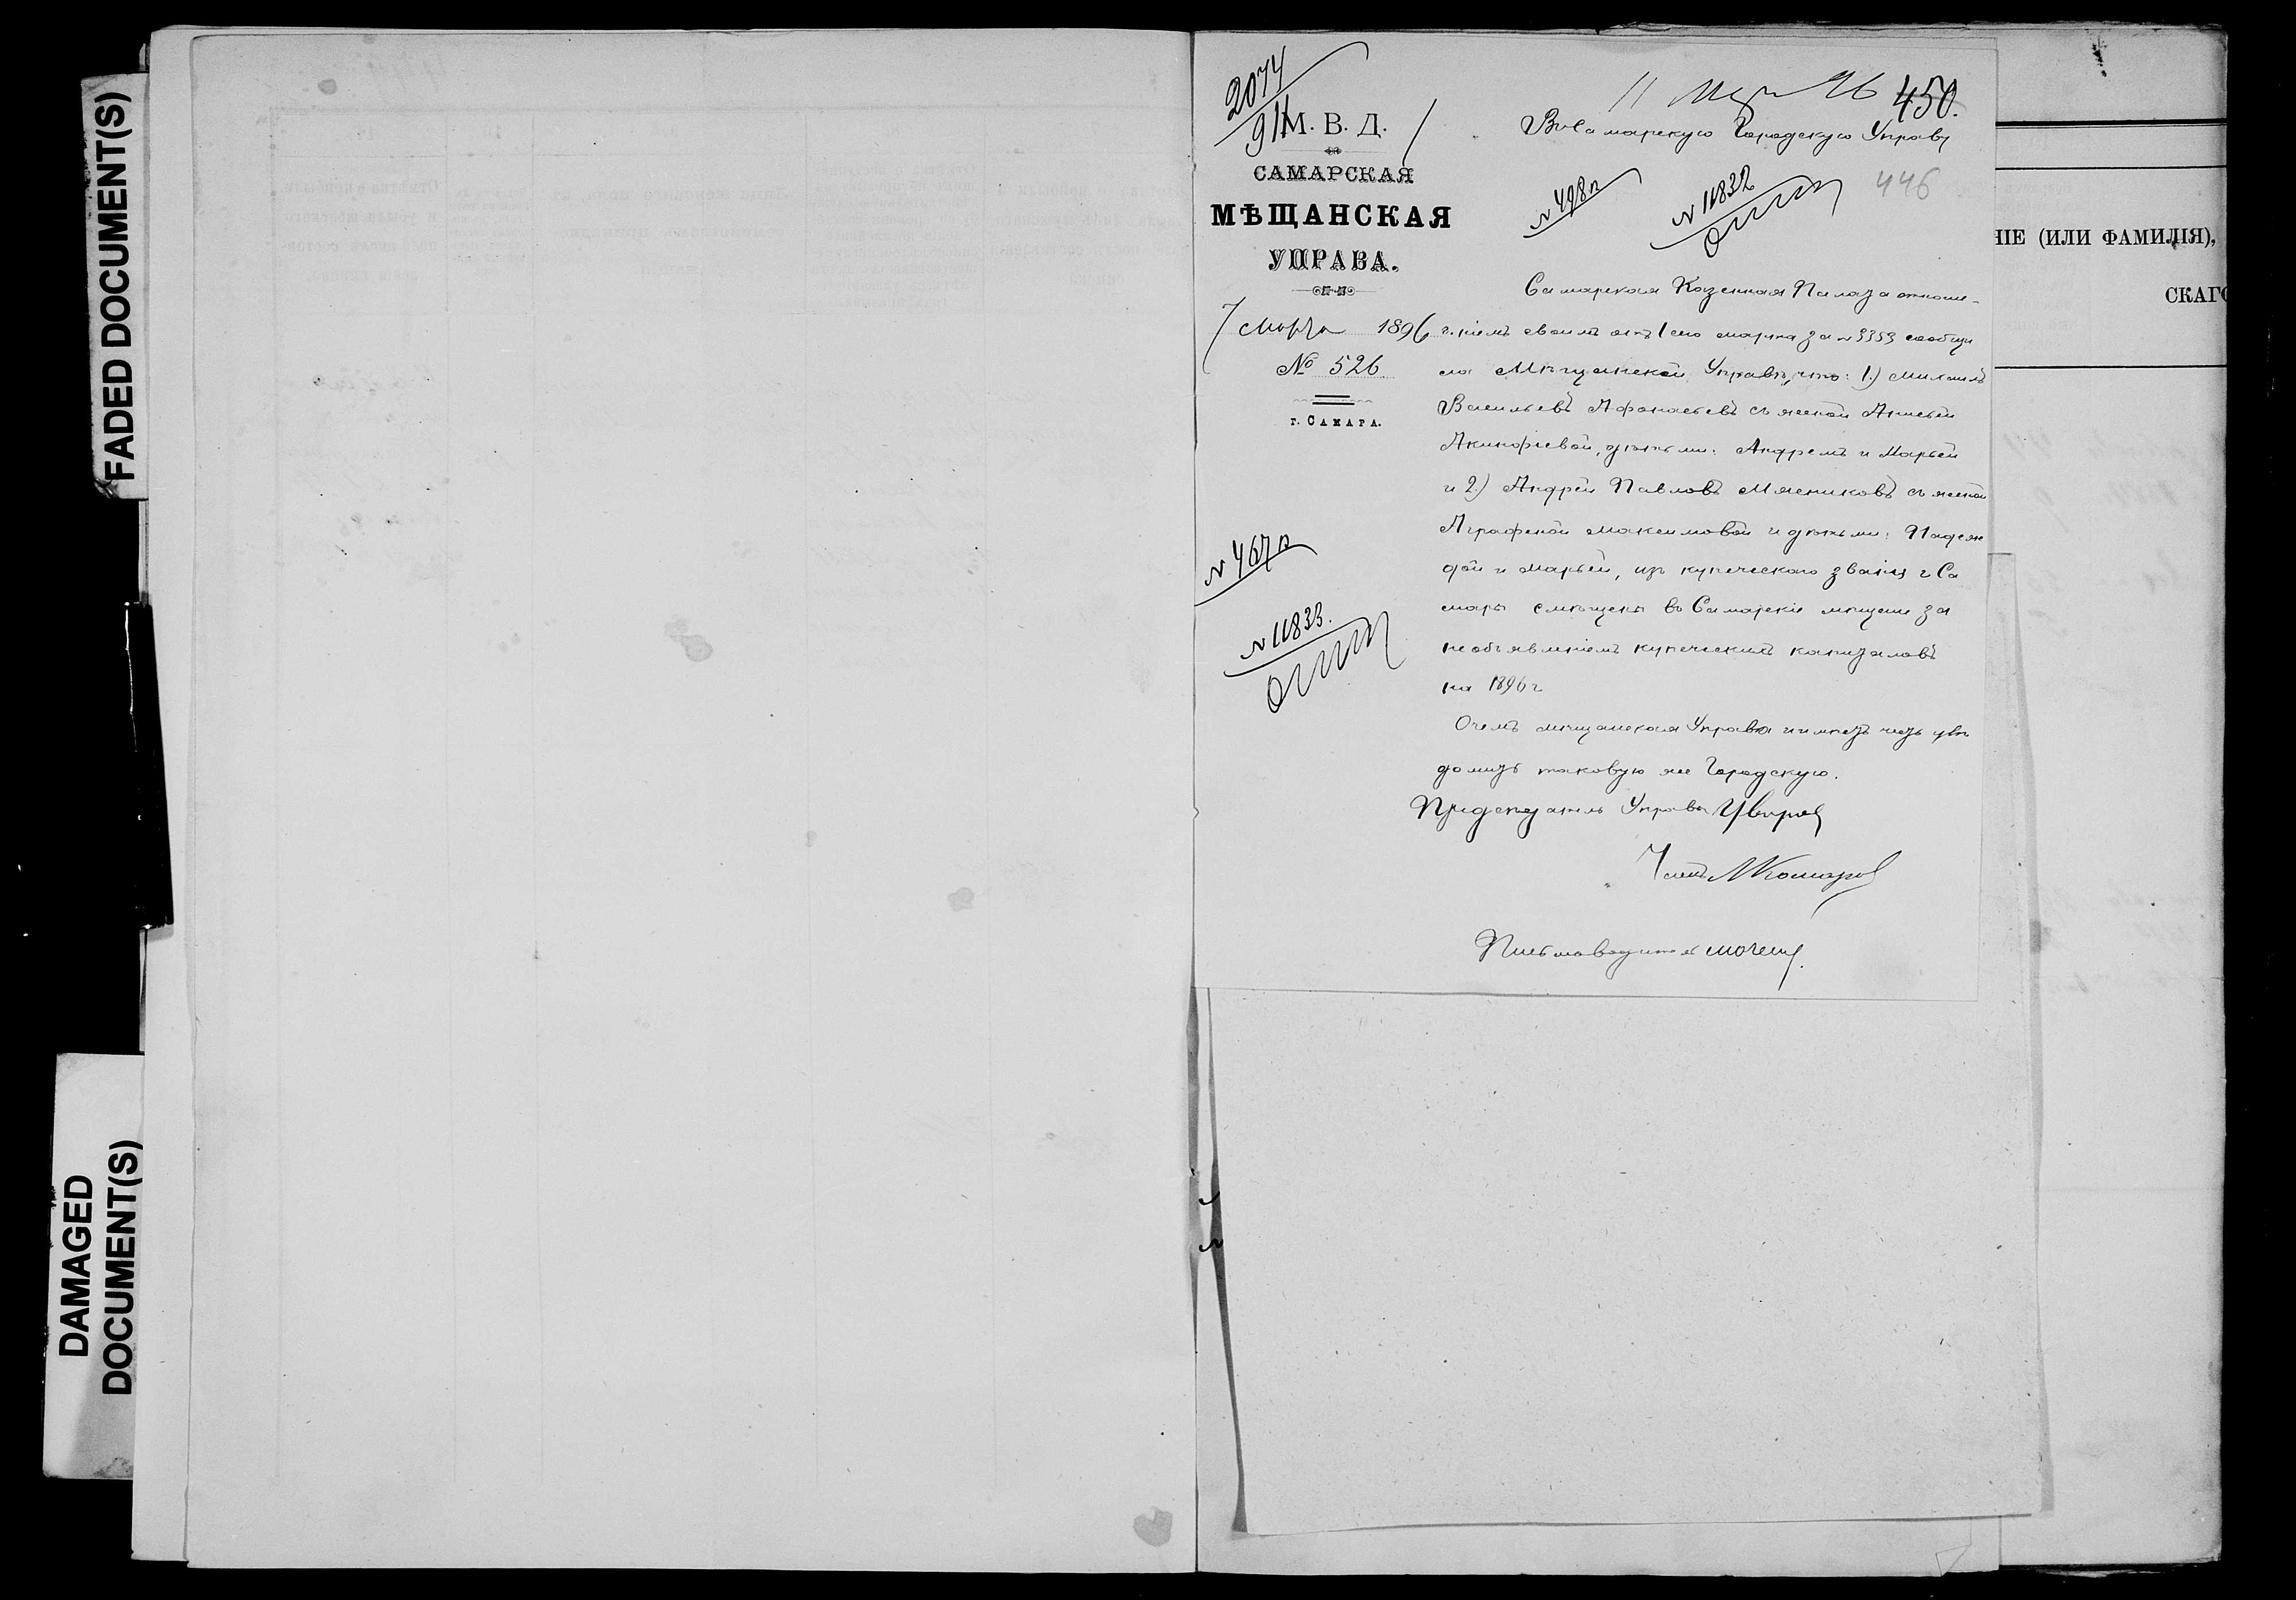 FADED DOCUMENT(S)
DAMAGED
DOCUMENT(S)
2074
911
11 Мар 96
450.
М. В. Д.
САМАРСКАЯ
МѢЩАНСКАЯ
УПРАВА.
7 Марта 1896 г.
№ 526
г. САМАРА.
Въ Самарскую Городскую Управу
№ 498
№ 11832
446
Самарская Казенная Палата отноше-
ніемъ своимъ отъ 1 сего марта за № 3353 сообщи
ла Мѣщанской Управѣ, что: 1.) Михаилъ
Васильевъ Афанасьевъ съ женой Анисьей
Акинфіевой, дѣтьми: Андреемъ и Марьей
и 2.) Андрей Павловъ Мясниковъ съ женой
Аграфеной Максимовой и дѣтьми: Надеж
дой и Марьей, изъ купеческаго званія г. Са
мары смѣщены въ Самарскіе мѣщане за
необъявленіемъ купеческихъ капиталовъ
на 1896 г
О чемъ мѣщанская Управа и имѣетъ честь увѣ
домить таковую же Городскую.
Предсѣдатель Управы
Членъ
Письмоводитель
№ 467
№ 11833.
НІЕ (ИЛИ ФАМИЛІЯ),
СКАГО